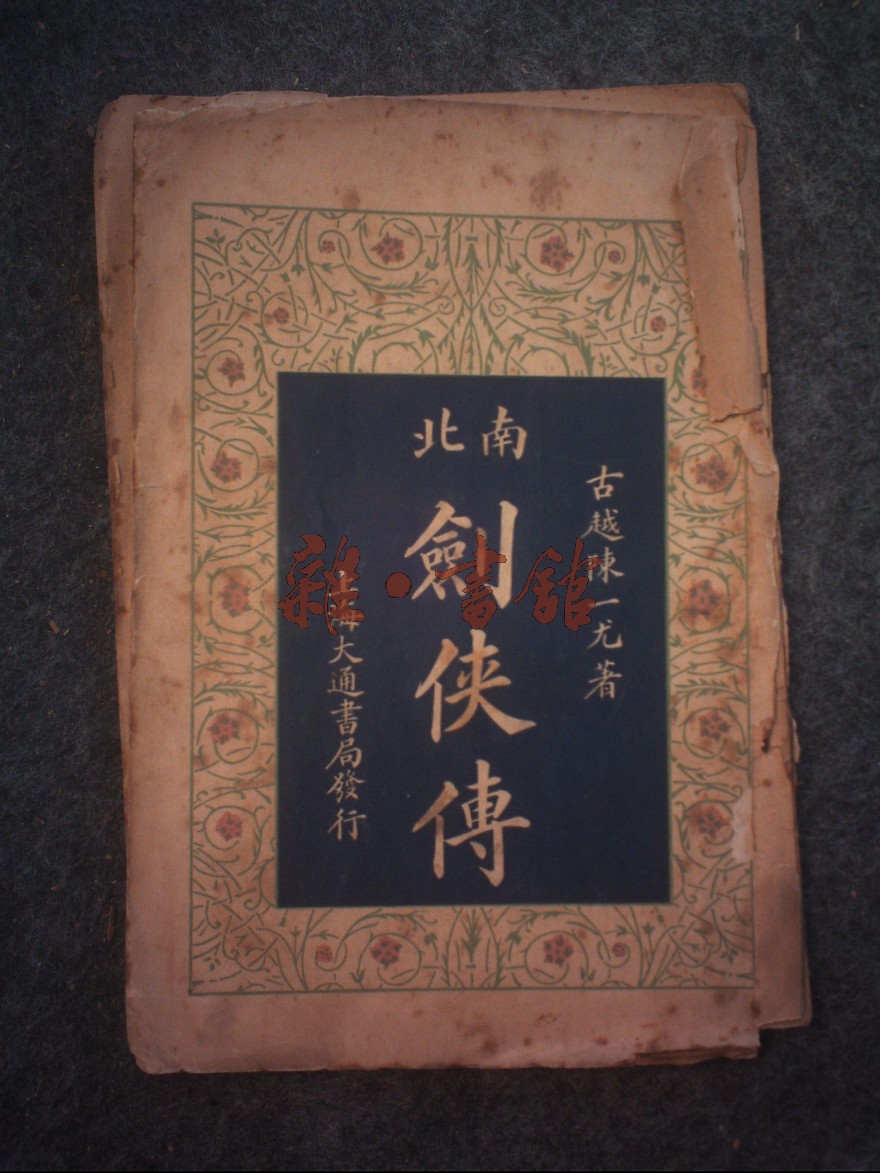 古越陳一尤著
南北
劍俠傳
上海大通書局發行
雜·書舘